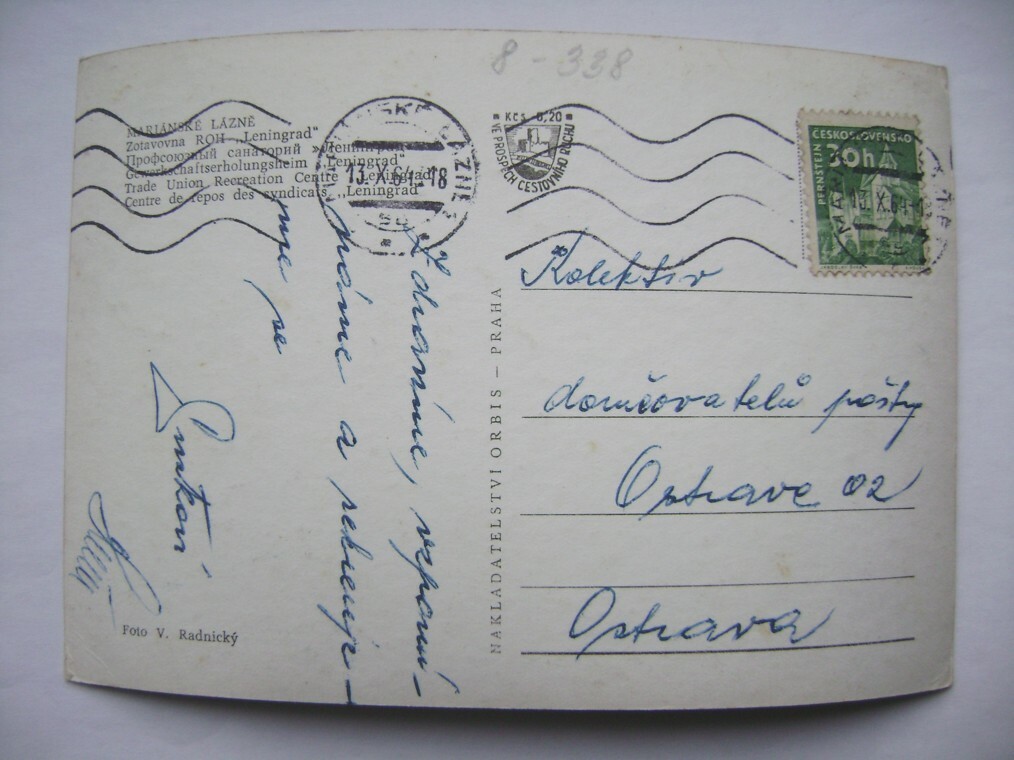 8 - 338
MARIÁNSKÉ LÁZNĚ
Zotavovna ROH „Leningrad“
Профсоюзный санаторий »Ленинград«
Gewerkschaftserholungsheim „Leningrad“
Trade Union Recreation Centre „Leningrad“
Centre de repos des syndicats „Leningrad“
MARIÁNSKÉ LÁZNĚ
13.X.64-18
Kčs 0,20
VE PROSPĚCH CESTOVNÍHO RUCHU
ČESKOSLOVENSKO
30h
PERNŠTEJN
13.X.64-
Zdravíme, vzpomí-
náme a rekreuje-
me se
NAKLADATELSTVÍ ORBIS – PRAHA
Kolektiv
doručovatelů pošty
Ostrava 02
Ostrava
Foto V. Radnický